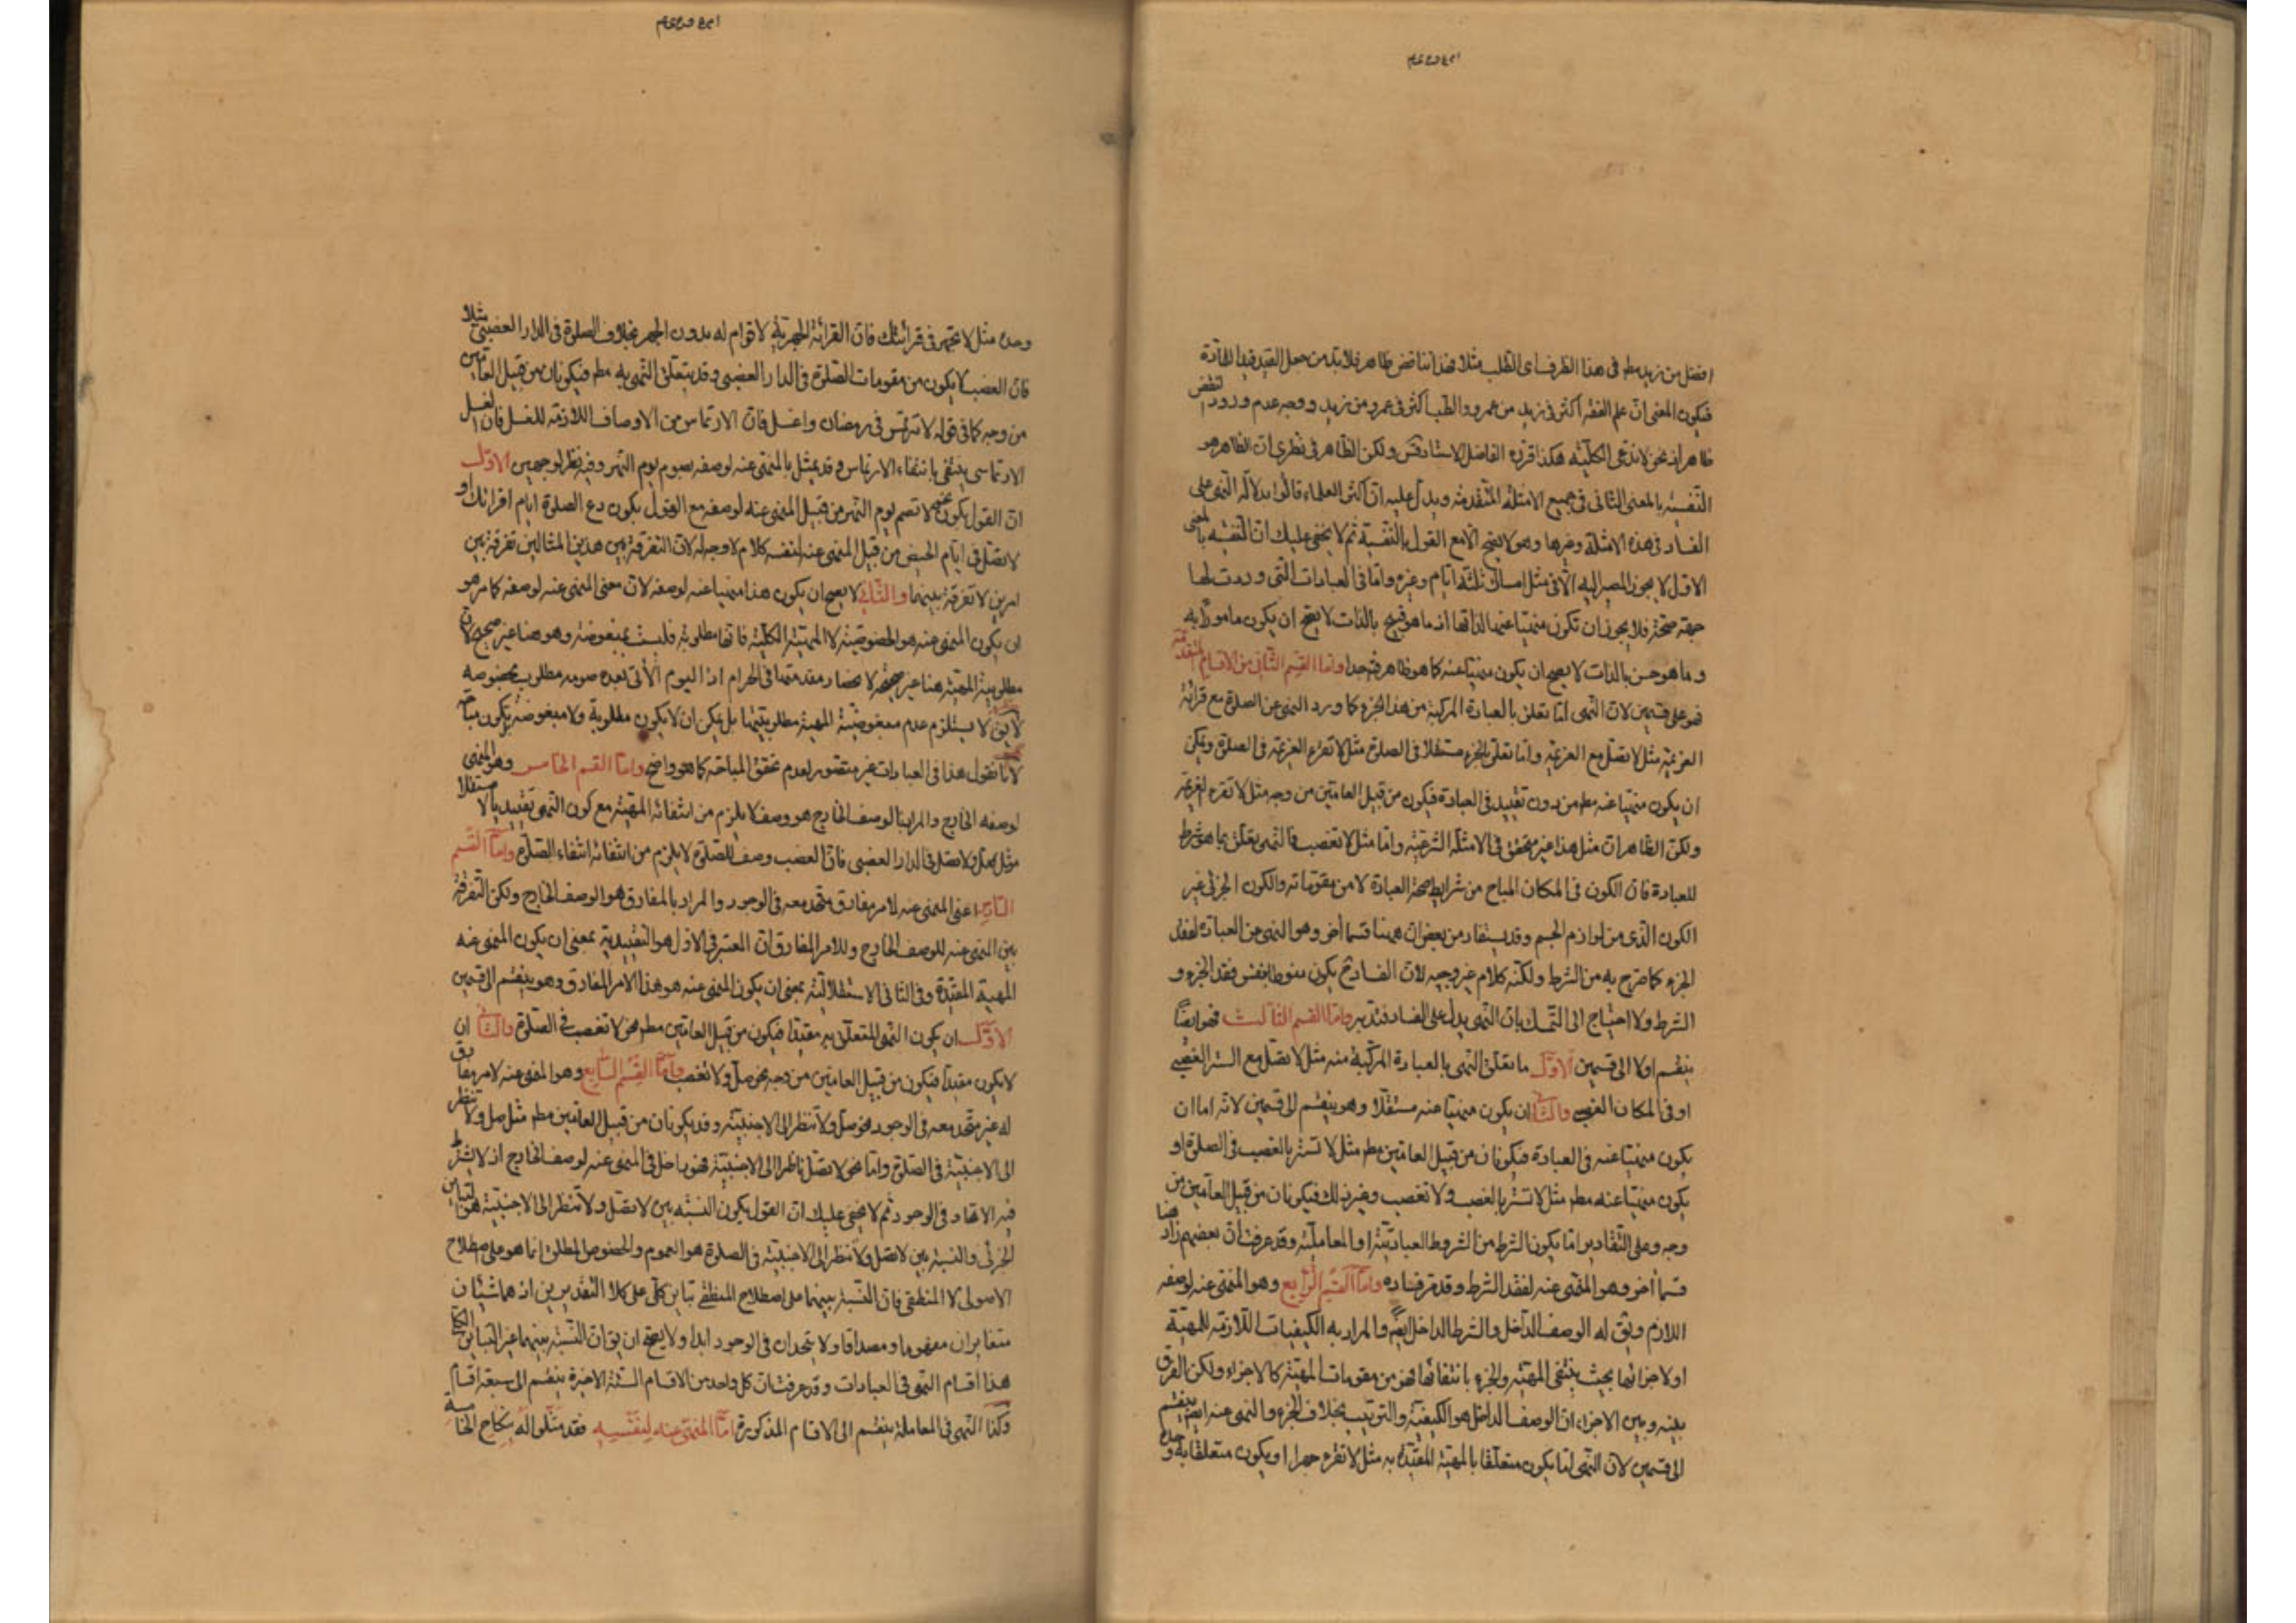 افضل من زيد مط في هذا الظرف اى الطلب مثلا فهذا تناقض ظاهر فلا بد من جعل القيد قيدا للمادة
فيكون المعنى ان علم الفقه اكثر في زيد من عمرو والطب اكثر في عمرو من زيد ووجه عدم ورود النقض
ظاهر اذ نحن لا ندعى الكلية هكذا قرره الفاضل الاستاد ولكن الظاهر في نظرى ان الظاهر هو
النفسية بالمعنى الثانى في جميع الامثلة المتقدمة ويدل عليه ان اكثر العلماء قالوا بدلالة النهى على
الفساد في هذه الامثلة وغيرها وهو لا يصح الا مع القول بالنفسية ثم لا يخفى عليك ان النفسية بالمعنى
الاول لا يجوز المصير اليه الا في مثل امساك ثلثة ايام وغيره واما في العبادات التى وردت لها
جهة صحة فلا يجوز ان تكون منهيا عنها لذاتها اذ ما هو قبيح بالذات لا يصح ان يكون مامورا به
وما هو حسن بالذات لا يصح ان يكون منهيا عنه كما هو ظاهر جدا واما القسم الثانى من الاقسام المتقدمة
فهو على قسمين لان النهى اما تعلق بالعبادة المركبة من هذا الجزء كما ورد النهى عن الصلوة مع قرائة
العزيمة مثل لا تصل مع العزيمة واما تعلق بالجزء مستقلا في الصلوة مثل لا تقرء العزيمة في الصلوة ويمكن
ان يكون منهيا عنه مط من دون تقييد في العبادة فيكون من قبيل العامين من وجه مثل لا تقرء العزيمة
ولكن الظاهر ان مثل هذا غير متحقق في الامثلة الشرعية واما مثل لا تغصب فالنهى يتعلق بما هو شرط
للعبادة فان الكون في المكان المباح من شرايط صحة العبادة لا من مقوماته والكون الجزئى غير
الكون الذى من لوازم الجسم وقد يستفاد من بعض ان ههنا قسما اخر وهو النهى عن العبادة لفقد
الجزء كما صرح به من الشرط ولكنه كلام غير وجيه لان الفساد ح يكون منوطا بنفس فقد الجزء و
الشرط ولا احتياج الى التمسك بان النهى يدل على الفساد فتدبر واما القسم الثالث فهو ايضا
ينقسم اولا الى قسمين الاول ما تعلق النهى بالعبادة المركبة منه مثل لا تصل مع الستر الغصبى
او في المكان الغصبى والثانى ان يكون منهيا عنه مستقلا وهو ينقسم الى قسمين لانه اما ان
يكون منهيا عنه في العبادة فيكونان من قبيل العامين مط مثل لا تستر بالغصب في الصلوة او
يكون منهيا عنه مط مثل لا تستر بالغصب ولا تغصب وغير ذلك فيكونان من قبيل العامين من
وجه وعلى التقادير اما يكون الشرط من الشروط العبادتية او المعاملية وقد عرفت ان بعضهم زاد هنا
قسما اخر وهو المنهى عنه لفقد الشرط وقد مر فساده واما القسم الرابع وهو المنهى عنه لوصفه
اللازم ويق له الوصف الداخل والشرط الداخل ايضا والمراد به الكيفيات اللازمة للمهية
او لاجزائها بحيث ينتفى المهية والجزء بانتفائها فهو من مقومات المهية كالاجزاء ولكن الفرق
بينه وبين الاجزاء ان الوصف الداخل هو الكيفية والترتيب بخلاف الجزء والنهى عنه ايضا ينقسم
الى قسمين لان النهى اما يكون متعلقا بالمهية المقيدة به مثل لا تقرء جهرا او يكون متعلقا به و
وحده مثل لا تجهر في قرائتك فان القرائة الجهرية لا قوام له بدون الجهر بخلاف الصلوة في الدار الغصبى مثلا
فان الغصب لا يكون من مقومات الصلوة في الدار الغصبى وقد يتعلق النهى به مط فيكونان من قبيل العامين
من وجه كما في قوله لا ترتمس في رمضان واغتسل فان الارتماس من الاوصاف اللازمة للغسل فان الغسل
الارتماسى ينتفى بانتفاء الارتماس وقد يمثل بالمنهى عنه لوصفه بصوم يوم النحر وفيه نظر لوجهين الاول
ان القول بكون نحو لا تصم يوم النحر من قبيل المنهى عنه لوصفه مع القول بكون دع الصلوة ايام اقرائك او
لا تصل في ايام الحيض من قبيل المنهى عنه لنفسه كلام لا وجه له لان التفرقة بين هذين المثالين تفرقة بين
امرين لا تفرقة بينهما والثانى لا يصح ان يكون هذا منهيا عنه لوصفه لان معنى المنهى عنه لوصفه كما مر هو
ان يكون المنهى عنه هو الخصوصية لا المهية الكلية فانها مطلوبة فليست بمبغوضة وهو هنا غير صحيح لان
مطلوبية المهية هنا غير صحيحة اذ اليوم الاتى بعده صومه مطلوب بخصوصه
لا يق لا يستلزم عدم مبغوضية المهية مطلوبيتها بل يمكن ان لا يكون مطلوبة ولا مبغوضة بكون مباحة
لانا نقول هذا في العبادات غير متصور لعدم تحقق المباحة كما هو واضح واما القسم الخامس وهو المنهى
لوصفه الخارج والمراد بالوصف الخارج هو وصف لا يلزم من انتفائه انتفاء المهية مع كون النهى تقييديا لا مستقلا
مثل صل ولا تصل في الدار الغصبى فان الغصب وصف للصلوة لا يلزم من انتفائه انتفاء الصلوة واما القسم
السادس اعنى المنهى عنه لامر مفارق متحد معه في الوجود والمراد بالمفارق هو الوصف الخارج ولكن التفرقة
بين المنهى عنه للوصف الخارج وللامر المفارق ان المعتبر في الاول هو التقييدية بمعنى ان يكون المنهى عنه
المهية المقيدة وفي الثانى الاستقلالية بمعنى ان يكون المنهى عنه هو هذا الامر المفارق وهو ينقسم الى قسمين
الاول ان يكون النهى المتعلق به مقيدا فيكون من قبيل العامين مط نحو لا تغصب في الصلوة والثانى ان
لا يكون مقيدا فيكون من قبيل العامين من وجه نحو صل ولا تغصب واما القسم السابع وهو المنهى عنه لامر مفارق
له غير متحد معه في الوجود نحو صل ولا تنظر الى الاجنبية وقد يكونان من قبيل العامين مط مثل صل ولا تنظر
الى الاجنبية في الصلوة واما نحو لا تصل ناظرا الى الاجنبية فهو داخل في المنهى عنه لوصف الخارج اذ لا يشترط
فيه الاتحاد في الوجود ثم لا يخفى عليك ان القول بكون النسبة بين لا تصل ولا تنظر الى الاجنبية هو التباين
الجزئى والنسبة بين لا تصل ولا تنظر الى الاجنبية في الصلوة هو العموم والخصوص المطلق انما هو على اصطلاح
الاصولى لا المنطقى فان النسبة بينهما على اصطلاح المنطقى تباين كلى على كلا التقديرين اذ هما شيئان
متغايران مفهوما ومصداقا ولا يتحدان في الوجود ابدا ولا يصح ان يق ان النسبة بينهما غير التباين الكلى
هذا اقسام النهى في العبادات وقد عرفت ان كل واحد من الاقسام الستة الاخيرة ينقسم الى سبعة اقسام
وكذا النهى في المعاملة ينقسم الى الاقسام المذكورة اما المنهى عنه لنفسه فقد مثلوا له بنكاح الخامسة